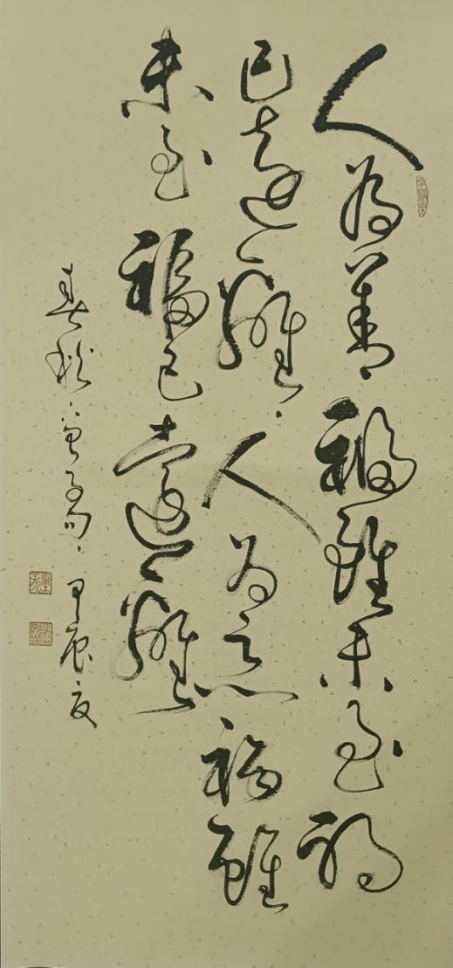 人為善福雖未至禍
已遠離人為惡禍雖
未至福已遠離
春秋曾子句甲辰夏